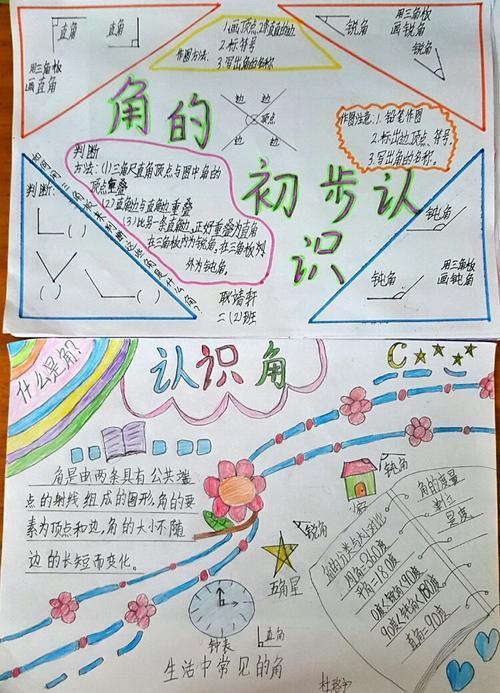 直角
直角
用三角板
画直角
1.画顶点,
作图方法:
2.标符号
3.写出角的名称
锐角
用三角板
画锐角
锐角
角的
初步认
识
边
边
顶点
边
边
作图注意:1.铅笔作图
2.标出边、顶点、符号.
3.写出角的名称.
判断
方法:(1)三角尺直角顶点与图中角的
顶点重叠
(2)直角边与直角边重叠
(3)比另一条直角边,正好重叠为直角
在三角板内为锐角,在三角板外
外为钝角.
判断:
( )
( )
( )
二(2)班
钝角
钝角
用三角板
画钝角
什么是角?
认识角
角是由两条具有公共端
点的射线组成的图形,角的要
素为顶点和边,角的大小不随
边的长短而变化。
锐角
五角星
钟表
直角
生活中常见的角
钝角
角的度量
单位
是度
角的分类与大小对比
周角=360度
平角=180度
0度<锐角<90度
90度<钝角<180度
直角=90度